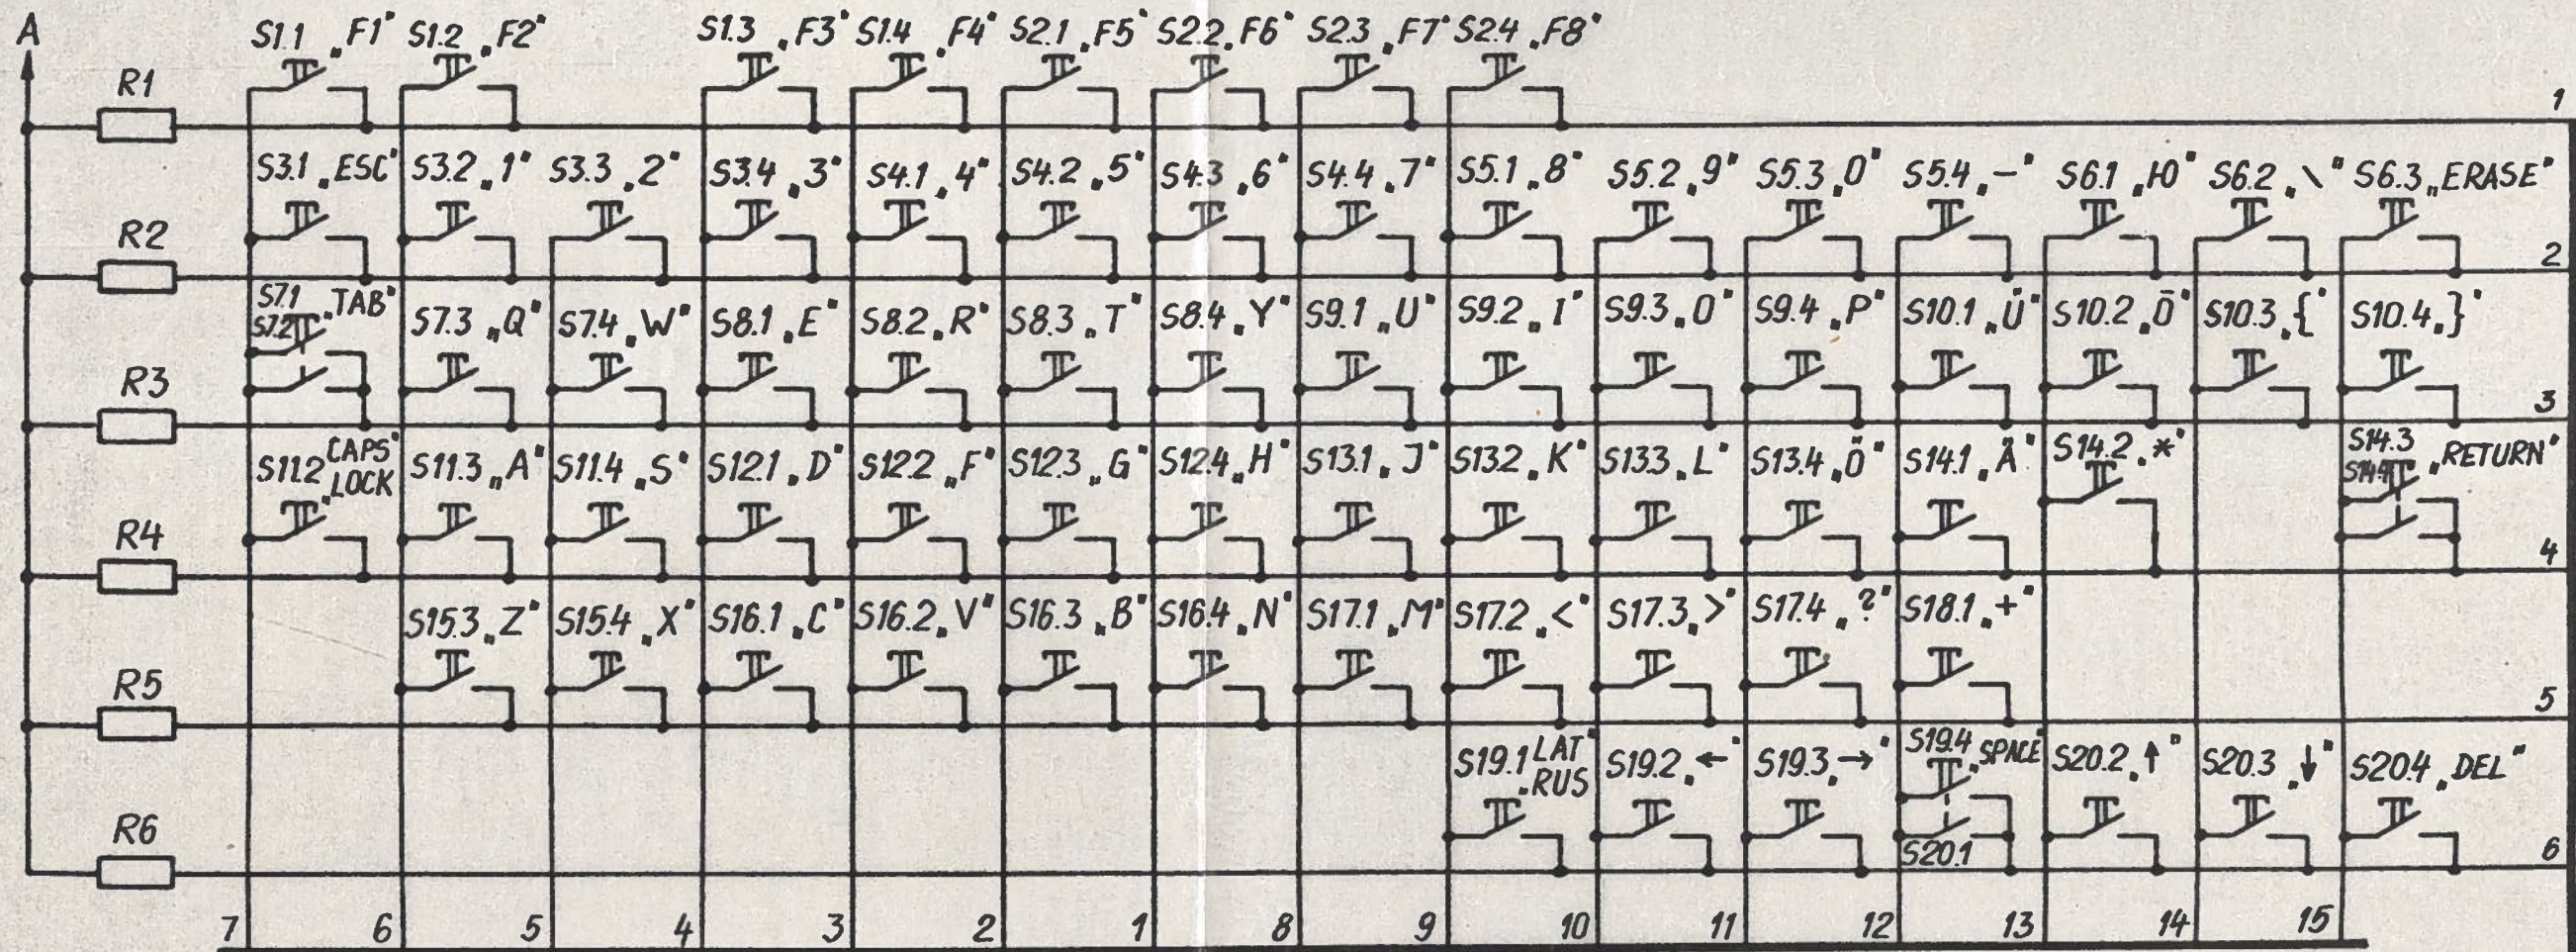 A
S1.1 „F1" S1.2 „F2" S1.3 „F3" S1.4 „F4" S2.1 „F5" S2.2 „F6" S2.3 „F7" S2.4 „F8"
R1
1
S3.1 „ESC" S3.2 „1" S3.3 „2" S3.4 „3" S4.1 „4" S4.2 „5" S4.3 „6" S4.4 „7" S5.1 „8" S5.2 „9" S5.3 „0" S5.4 „-" S6.1 „Ю" S6.2 „\" S6.3 „ERASE"
R2
2
S7.1 „TAB" S7.3 „Q" S7.4 „W" S8.1 „E" S8.2 „R" S8.3 „T" S8.4 „Y" S9.1 „U" S9.2 „I" S9.3 „O" S9.4 „P" S10.1 „Ü" S10.2 „Õ" S10.3 „{" S10.4 „}"
S7.2
R3
3
S11.2 „CAPS LOCK" S11.3 „A" S11.4 „S" S12.1 „D" S12.2 „F" S12.3 „G" S12.4 „H" S13.1 „J" S13.2 „K" S13.3 „L" S13.4 „Ö" S14.1 „Ä" S14.2 „*" S14.3 „RETURN"
S14.4
R4
4
S15.3 „Z" S15.4 „X" S16.1 „C" S16.2 „V" S16.3 „B" S16.4 „N" S17.1 „M" S17.2 „<" S17.3 „>" S17.4 „?" S18.1 „+"
R5
5
S19.1 „LAT RUS" S19.2 „←" S19.3 „→" S19.4 „SPACE" S20.2 „↑" S20.3 „↓" S20.4 „DEL"
R6
S20.1
6
7 6 5 4 3 2 1 8 9 10 11 12 13 14 15